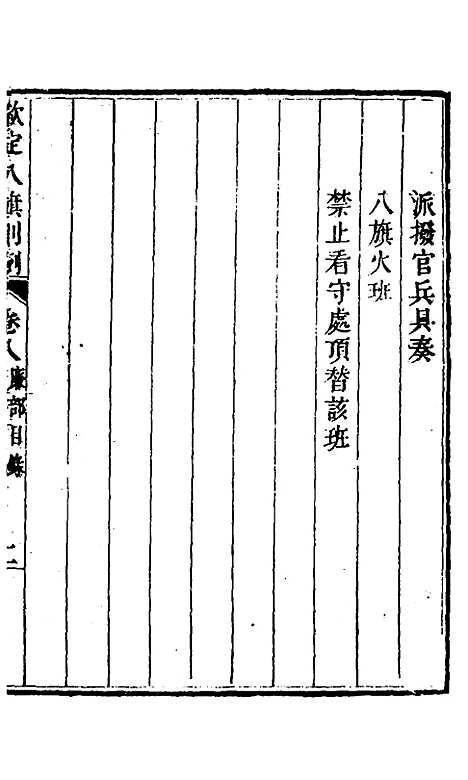 派撥官兵具奏
八旗火班
禁止看守處頂替該班
欽定八旗則例
卷八廉部目錄